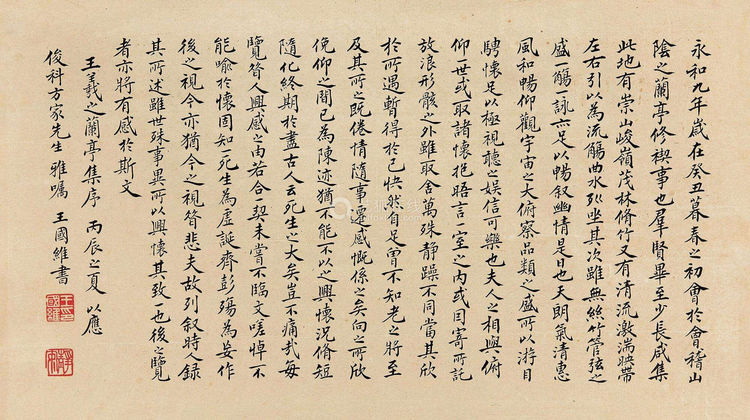 永和九年歲在癸丑暮春之初會於會稽山
陰之蘭亭修禊事也羣賢畢至少長咸集
此地有崇山峻嶺茂林脩竹又有清流激湍映帶
左右引以為流觴曲水列坐其次雖無絲竹管弦之
盛一觴一詠亦足以暢敘幽情是日也天朗氣清惠
風和暢仰觀宇宙之大俯察品類之盛所以游目
騁懷足以極視聽之娛信可樂也夫人之相與俯
仰一世或取諸懷抱晤言一室之內或因寄所託
放浪形骸之外雖取舍萬殊靜躁不同當其欣
於所遇暫得於己快然自足曾不知老之將至
及其所之既倦情隨事遷感慨係之矣向之所欣
俛仰之間已為陳迹猶不能不以之興懷況脩短
隨化終期於盡古人云死生之大矣豈不痛哉每
覽昔人興感之由若合一契未嘗不臨文嗟悼不
能喻於懷固知死生為虛誕齊彭殤為妄作
後之視今亦猶今之視昔悲夫故列敘時人錄
其所述雖世殊事異所以興懷其致一也後之覽
者亦將有感於斯文
王羲之蘭亭集序 丙辰之夏 以應
俊科方家先生 雅囑 王國維書